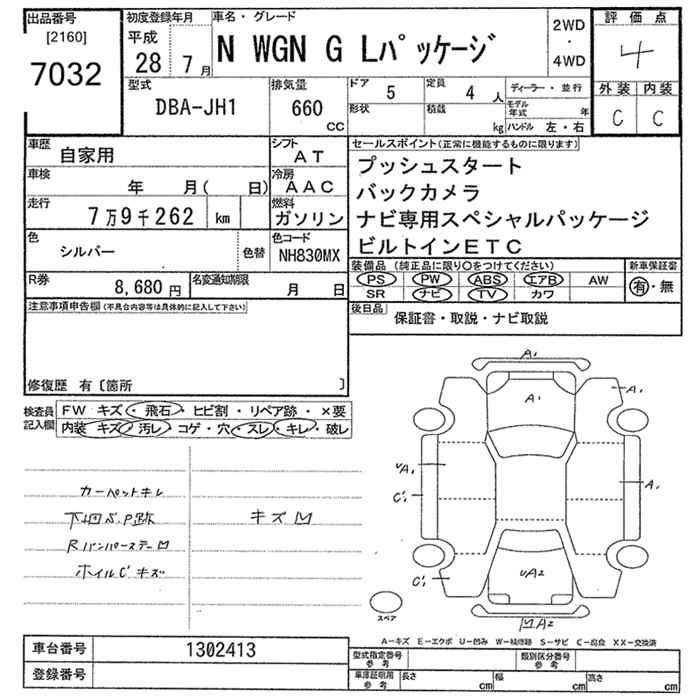 出品番号
[2160]
7032
初度登録年月
平成
28 7月
車名・グレード
N WGN G Lパッケージ
2WD
・
4WD
評価点
4
外装 内装
C C
型式
DBA-JH1
排気量
660
cc
ドア 5
定員 4 人
形状
積載 kg
ディーラー・並行
モデル年式 年
ハンドル 左・右
車歴
自家用
シフト
AT
車検
年 月( 日)
冷房
AAC
走行
7万9千262 km
燃料
ガソリン
色
シルバー
色替
色コード
NH830MX
R券
8,680 円
名変通知期限
月 日
セールスポイント(正常に機能するものに限ります)
プッシュスタート
バックカメラ
ナビ専用スペシャルパッケージ
ビルトインETC
装備品 (純正品に限り○をつけてください)
PS PW ABS エアB AW
SR ナビ TV カワ
新車保証書
有・無
後日品
保証書・取説・ナビ取説
注意事項申告欄(不具合内容等は具体的に記入して下さい)
修復歴 有〔箇所 〕
検査員
記入欄
FW キズ・飛石・ヒビ割・リペア跡・×要
内装 キズ・汚レ・コゲ・穴・スレ・キレ・破レ
カーペットキレ
キズ凹
ホイルCキズ
A1
A1
A1
UA1
C1
A1
C1
UA2
凹A2
スペア
A-キズ E-エクボ U-凹み W-補修跡 S-サビ C-腐食 XX-交換済
車台番号
1302413
登録番号
型式指定番号
参考
類別区分番号
参考
車庫証明用
参考
長さ cm
幅 cm
高さ cm